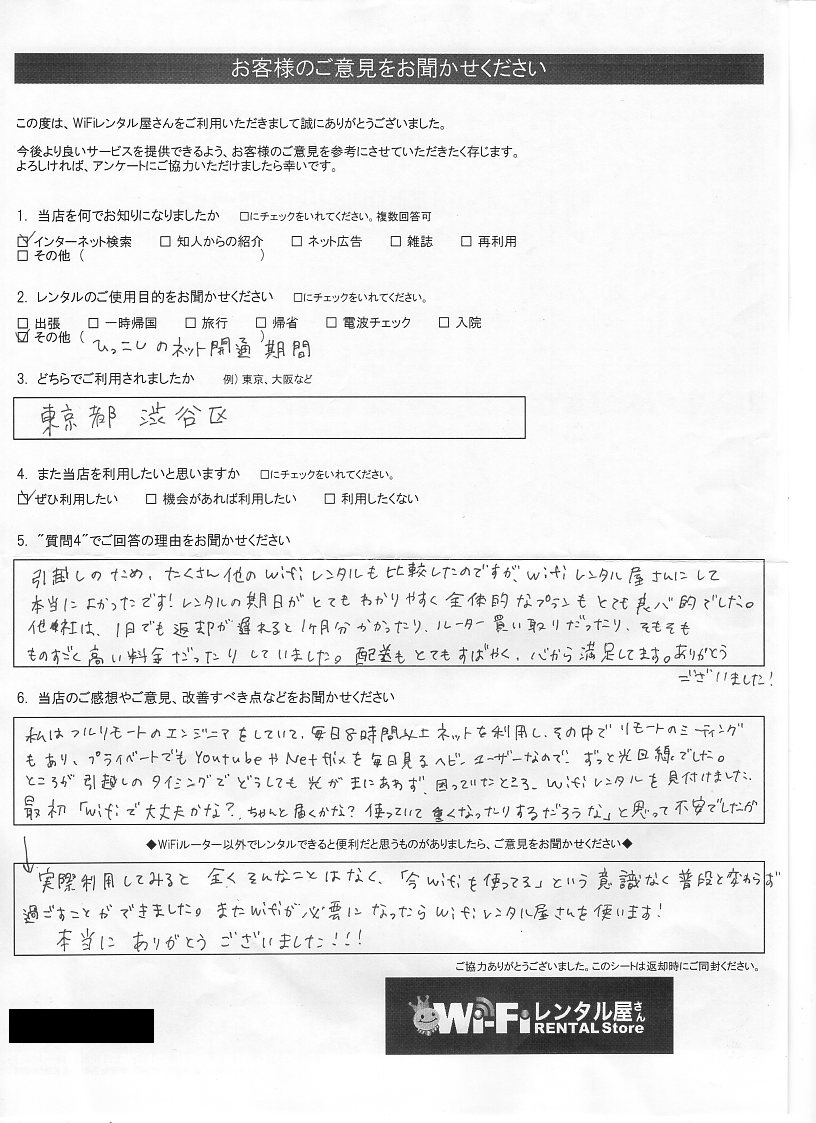 お客様のご意見をお聞かせください
この度は、WiFiレンタル屋さんをご利用いただきまして誠にありがとうございました。
今後より良いサービスを提供できるよう、お客様のご意見を参考にさせていただきたく存じます。
よろしければ、アンケートにご協力いただけましたら幸いです。
1. 当店を何でお知りになりましたか □にチェックをいれてください。複数回答可
☑インターネット検索 □ 知人からの紹介 □ ネット広告 □ 雑誌 □ 再利用
□ その他 ( )
2. レンタルのご使用目的をお聞かせください □にチェックをいれてください。
□ 出張 □ 一時帰国 □ 旅行 □ 帰省 □ 電波チェック □ 入院
☑ その他 ( ひっこしのネット開通期間 )
3. どちらでご利用されましたか 例) 東京、大阪など
東京都 渋谷区
4. また当店を利用したいと思いますか □にチェックをいれてください。
☑ぜひ利用したい □ 機会があれば利用したい □ 利用したくない
5. "質問4"でご回答の理由をお聞かせください
引越しのため、たくさん他のwifiレンタルも比較したのですが、wifiレンタル屋さんにして
本当によかったです!レンタルの期日がとてもわかりやすく全体的なプランもとても良心的でした。
他社は、1日でも返却が遅れると1ヶ月分かかったり、ルーター買い取りだったり、そもそも
ものすごく高い料金だったりしていました。配送もとてもすばやく、心から満足してます。ありがとう
ございました!
6. 当店のご感想やご意見、改善すべき点などをお聞かせください
私はフルリモートのエンジニアをしていて、毎日8時間以上ネットを利用し、その中でリモートのミーティング
もあり、プライベートでもYoutubeやNetflixを毎日見るヘビーユーザーなので、ずっと光回線でした。
ところが引越しのタイミングでどうしても光がまにあわず、困っていたところ、wifiレンタルを見付けました。
最初「wifiで大丈夫かな?、ちゃんと届くかな?使っていて重くなったりするだろうな」と思って不安でしたが
◆WiFiルーター以外でレンタルできると便利だと思うものがありましたら、ご意見をお聞かせください◆
↓実際利用してみると全くそんなことはなく、「今wifiを使ってる」という意識なく普段と変わらず
過ごすことができました。またwifiが必要になったらwifiレンタル屋さんを使います!
本当にありがとうございました!!!
ご協力ありがとうございました。このシートは返却時にご同封ください。
Wi-Fi レンタル屋さん
RENTAL Store